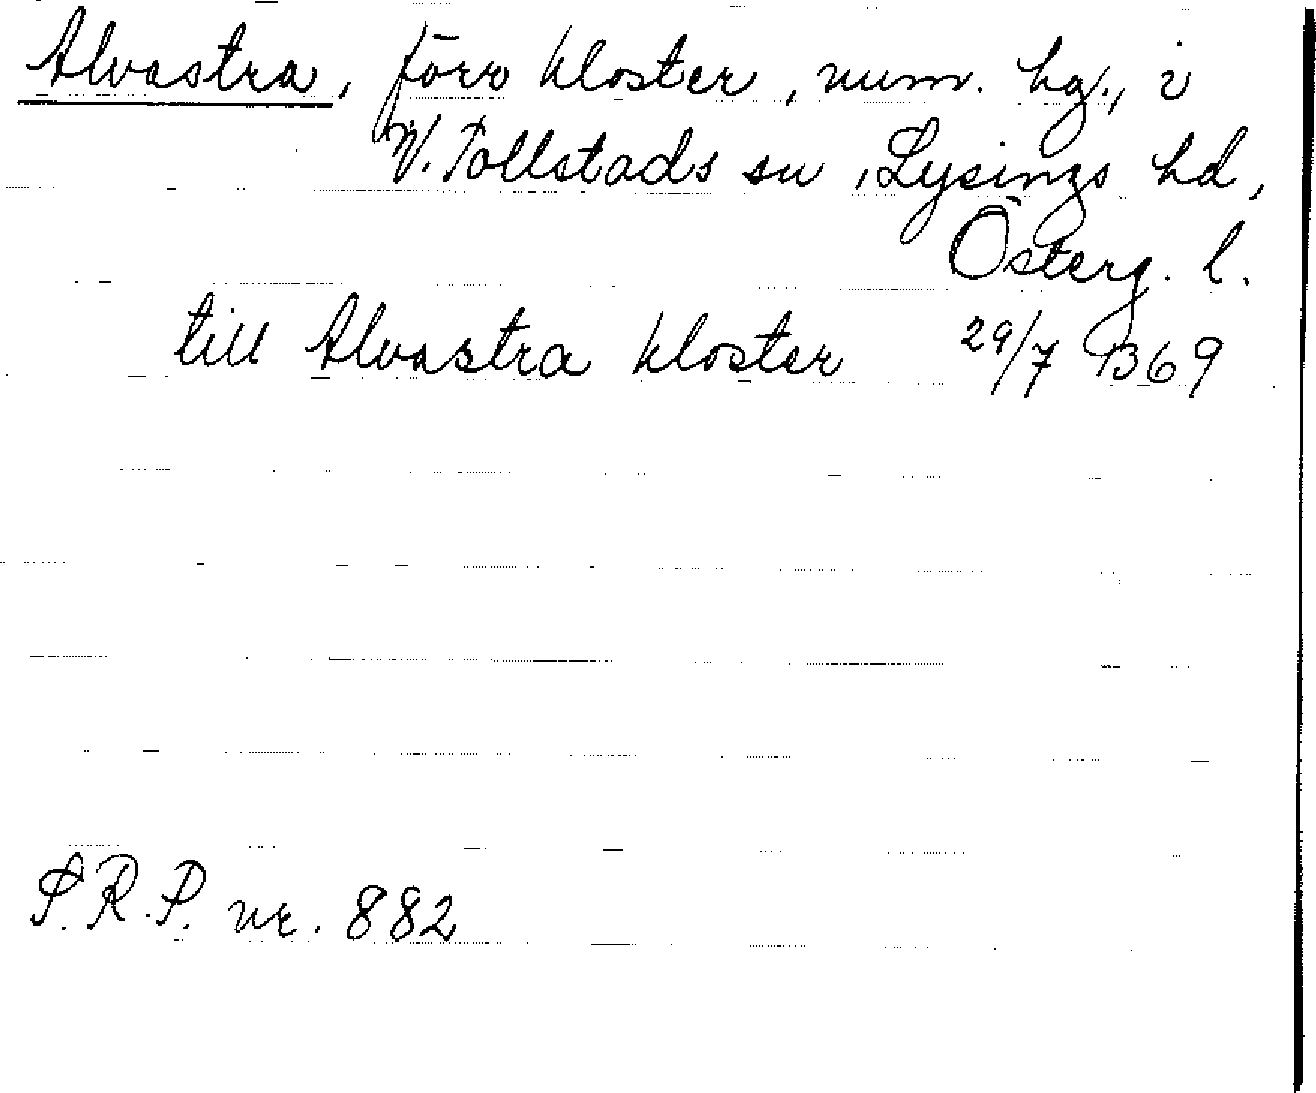 Alvastra, förv kloster, num. hg., i
V. Tollstads sn, Lysings hd,
Österg. l.
till Alvastra kloster 29/7 1369
S.R.P. nr. 882